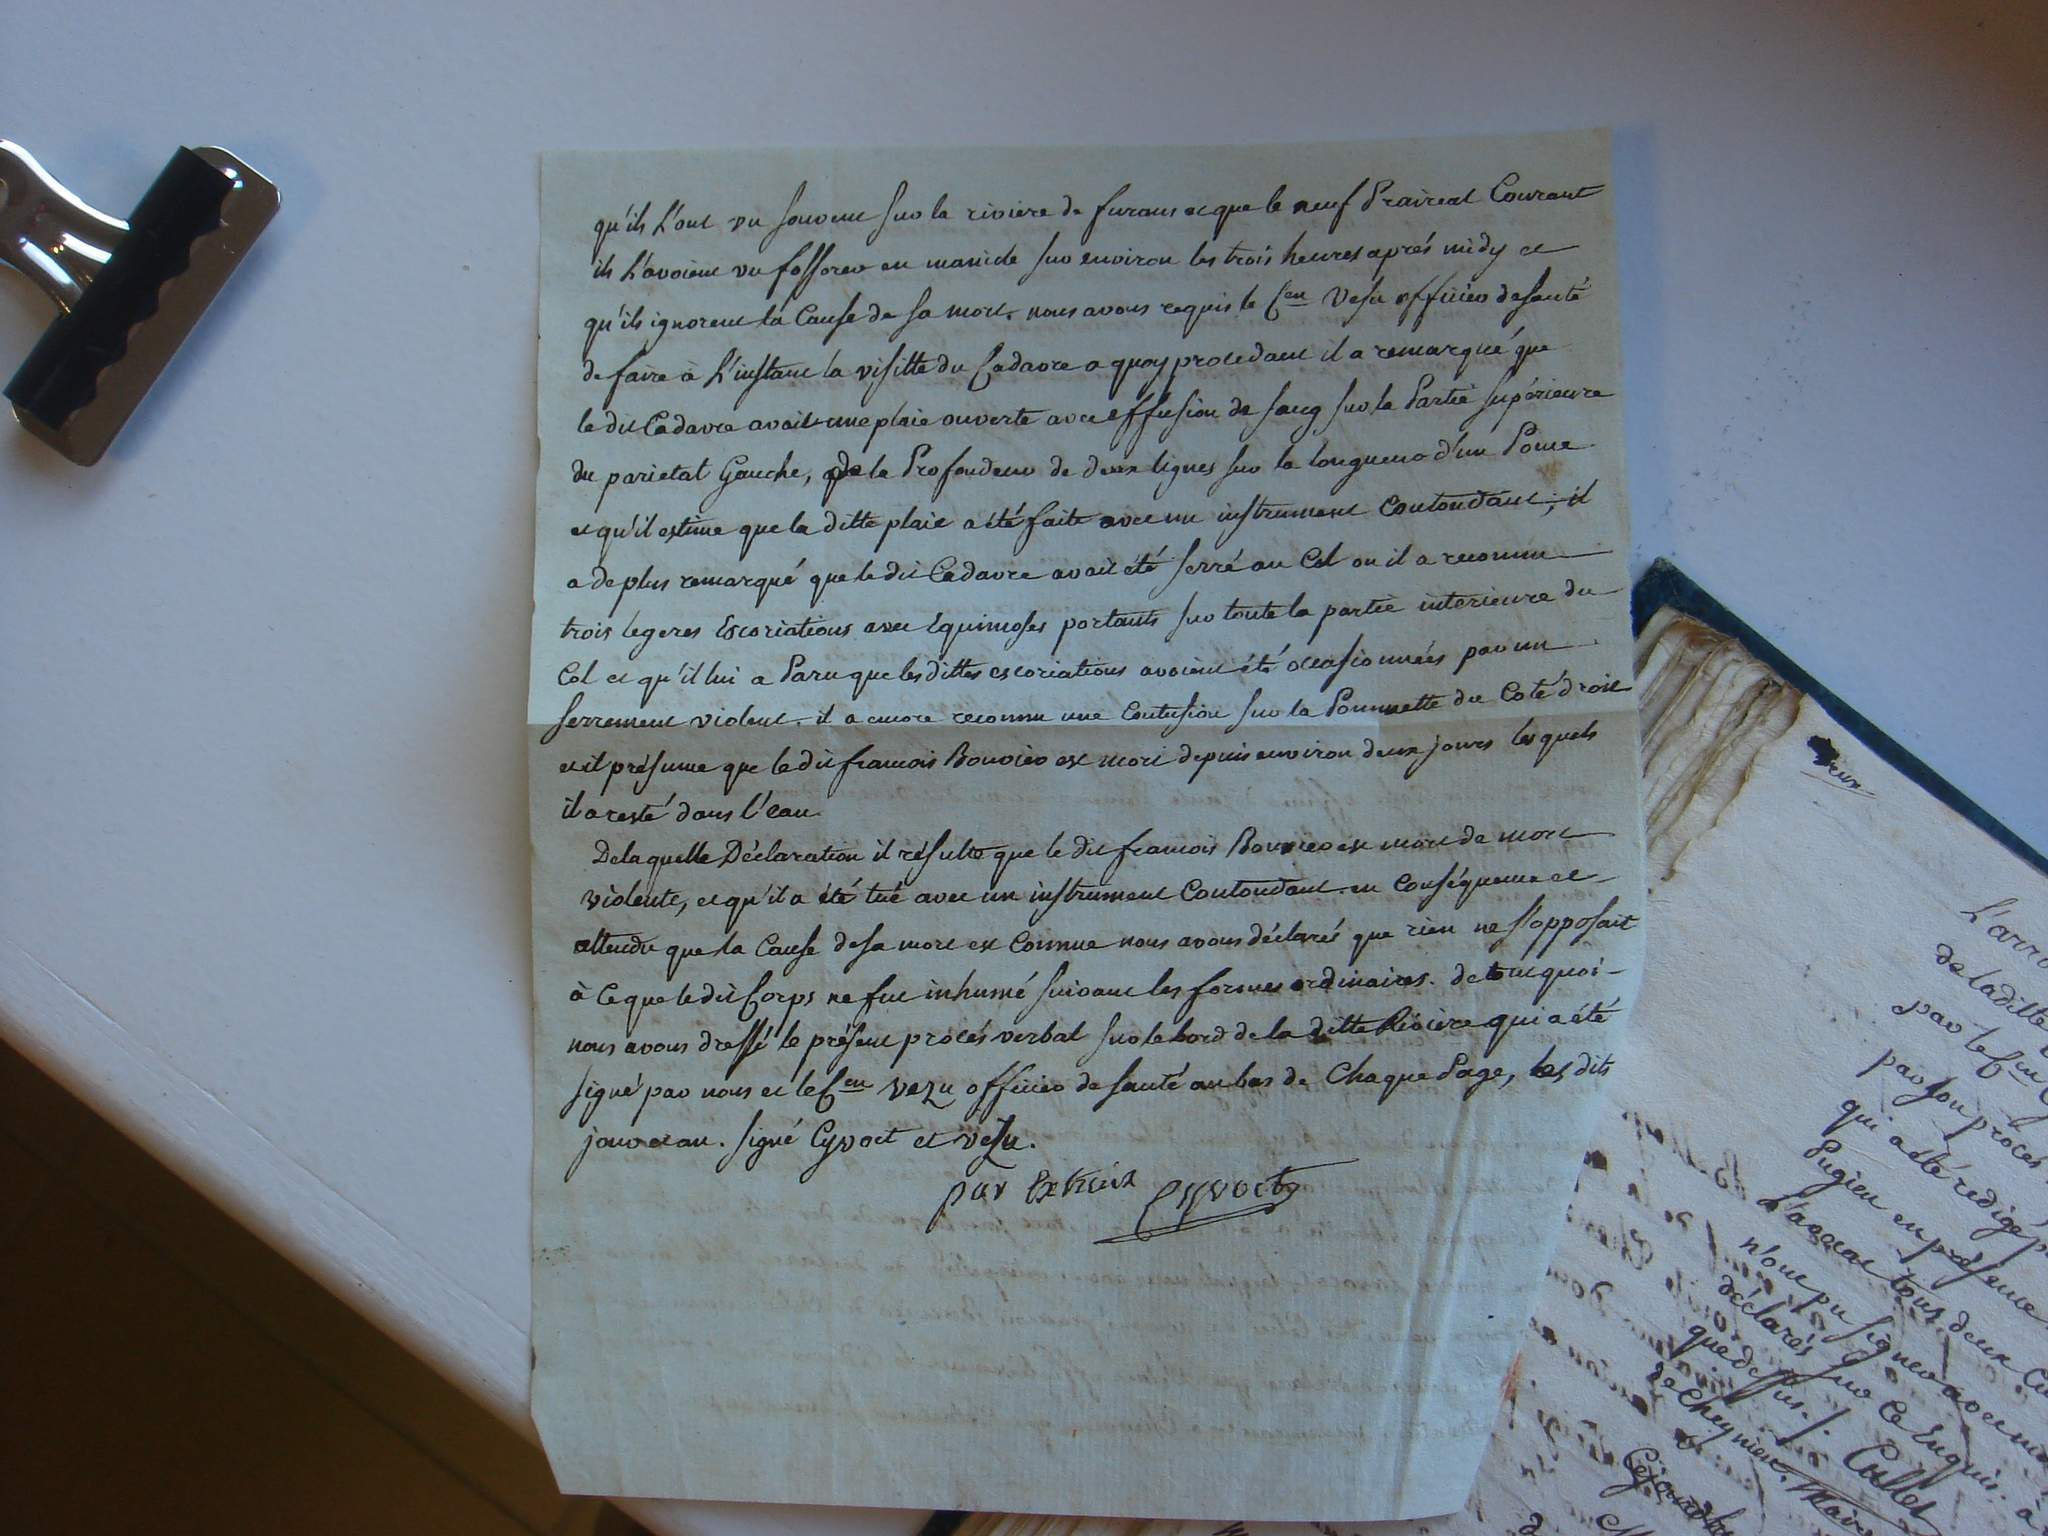 qu'ils L'ont vu souvent sur la rivière de furans et que le neuf Praireal Courant
ils L'avoient vu fossorer en manicle sur environ les trois heures après midy et
qu'ils ignorent la Cause de sa mort. nous avons requis le Cen Vesu officier de santé
de faire à L'instant la visitte du Cadavre a quoy procedant il a remarqué que
le dit Cadavre avait une plaie ouverte avec effusion de sang sur la Partie supérieure
du parietal Gauche, de la Profondeur de deux lignes sur la longueur d'un Pouce
et qu'il estime que la ditte plaie a été faite avec un instrument Contondant, il
a de plus remarqué que le dit Cadavre avait été serré au Col ou il a reconnu
trois legeres Escoriations avec Equimoses portants sur toute la partie interieure du
Col et qu'il lui a Paru que les dittes escoriations avoient été ocasionnées par un
serrement violent. il a encore reconnu une Contusion sur la Pommette du Coté droit
et il présume que le dit francois Bouvier est mort depuis environ deux jours les quels
il a resté dans l'eau.
De la quelle Déclaration il résulte que le dit francois Bouvier est mort de mort
violente, et qu'il a été tué avec un instrument Contondant. en Conséquence et
attendu que la Cause de sa mort est Connue nous avons déclarés que rien ne s'opposait
à ce que le dit Corps ne fut inhumé suivant les formes ordinaires. de tout quoi
nous avons dressé le présent procés verbal sur le bord de la ditte Rivière qui a été
signé par nous et le Cen vezu officier de santé au bas de Chaque Page, les dits
jour et an. signé Cyvoct et vesu.
par Extrait Cyvoct
L'arro
de la ditte
par le Cen
par son procès
qui a été rédigé p
Pugieu en présence
tous deux Cu
n'ont pu signer avec no
déclarés sur Ce Enquis. à
que dessus. Cullet
de Cheynieu, Mair